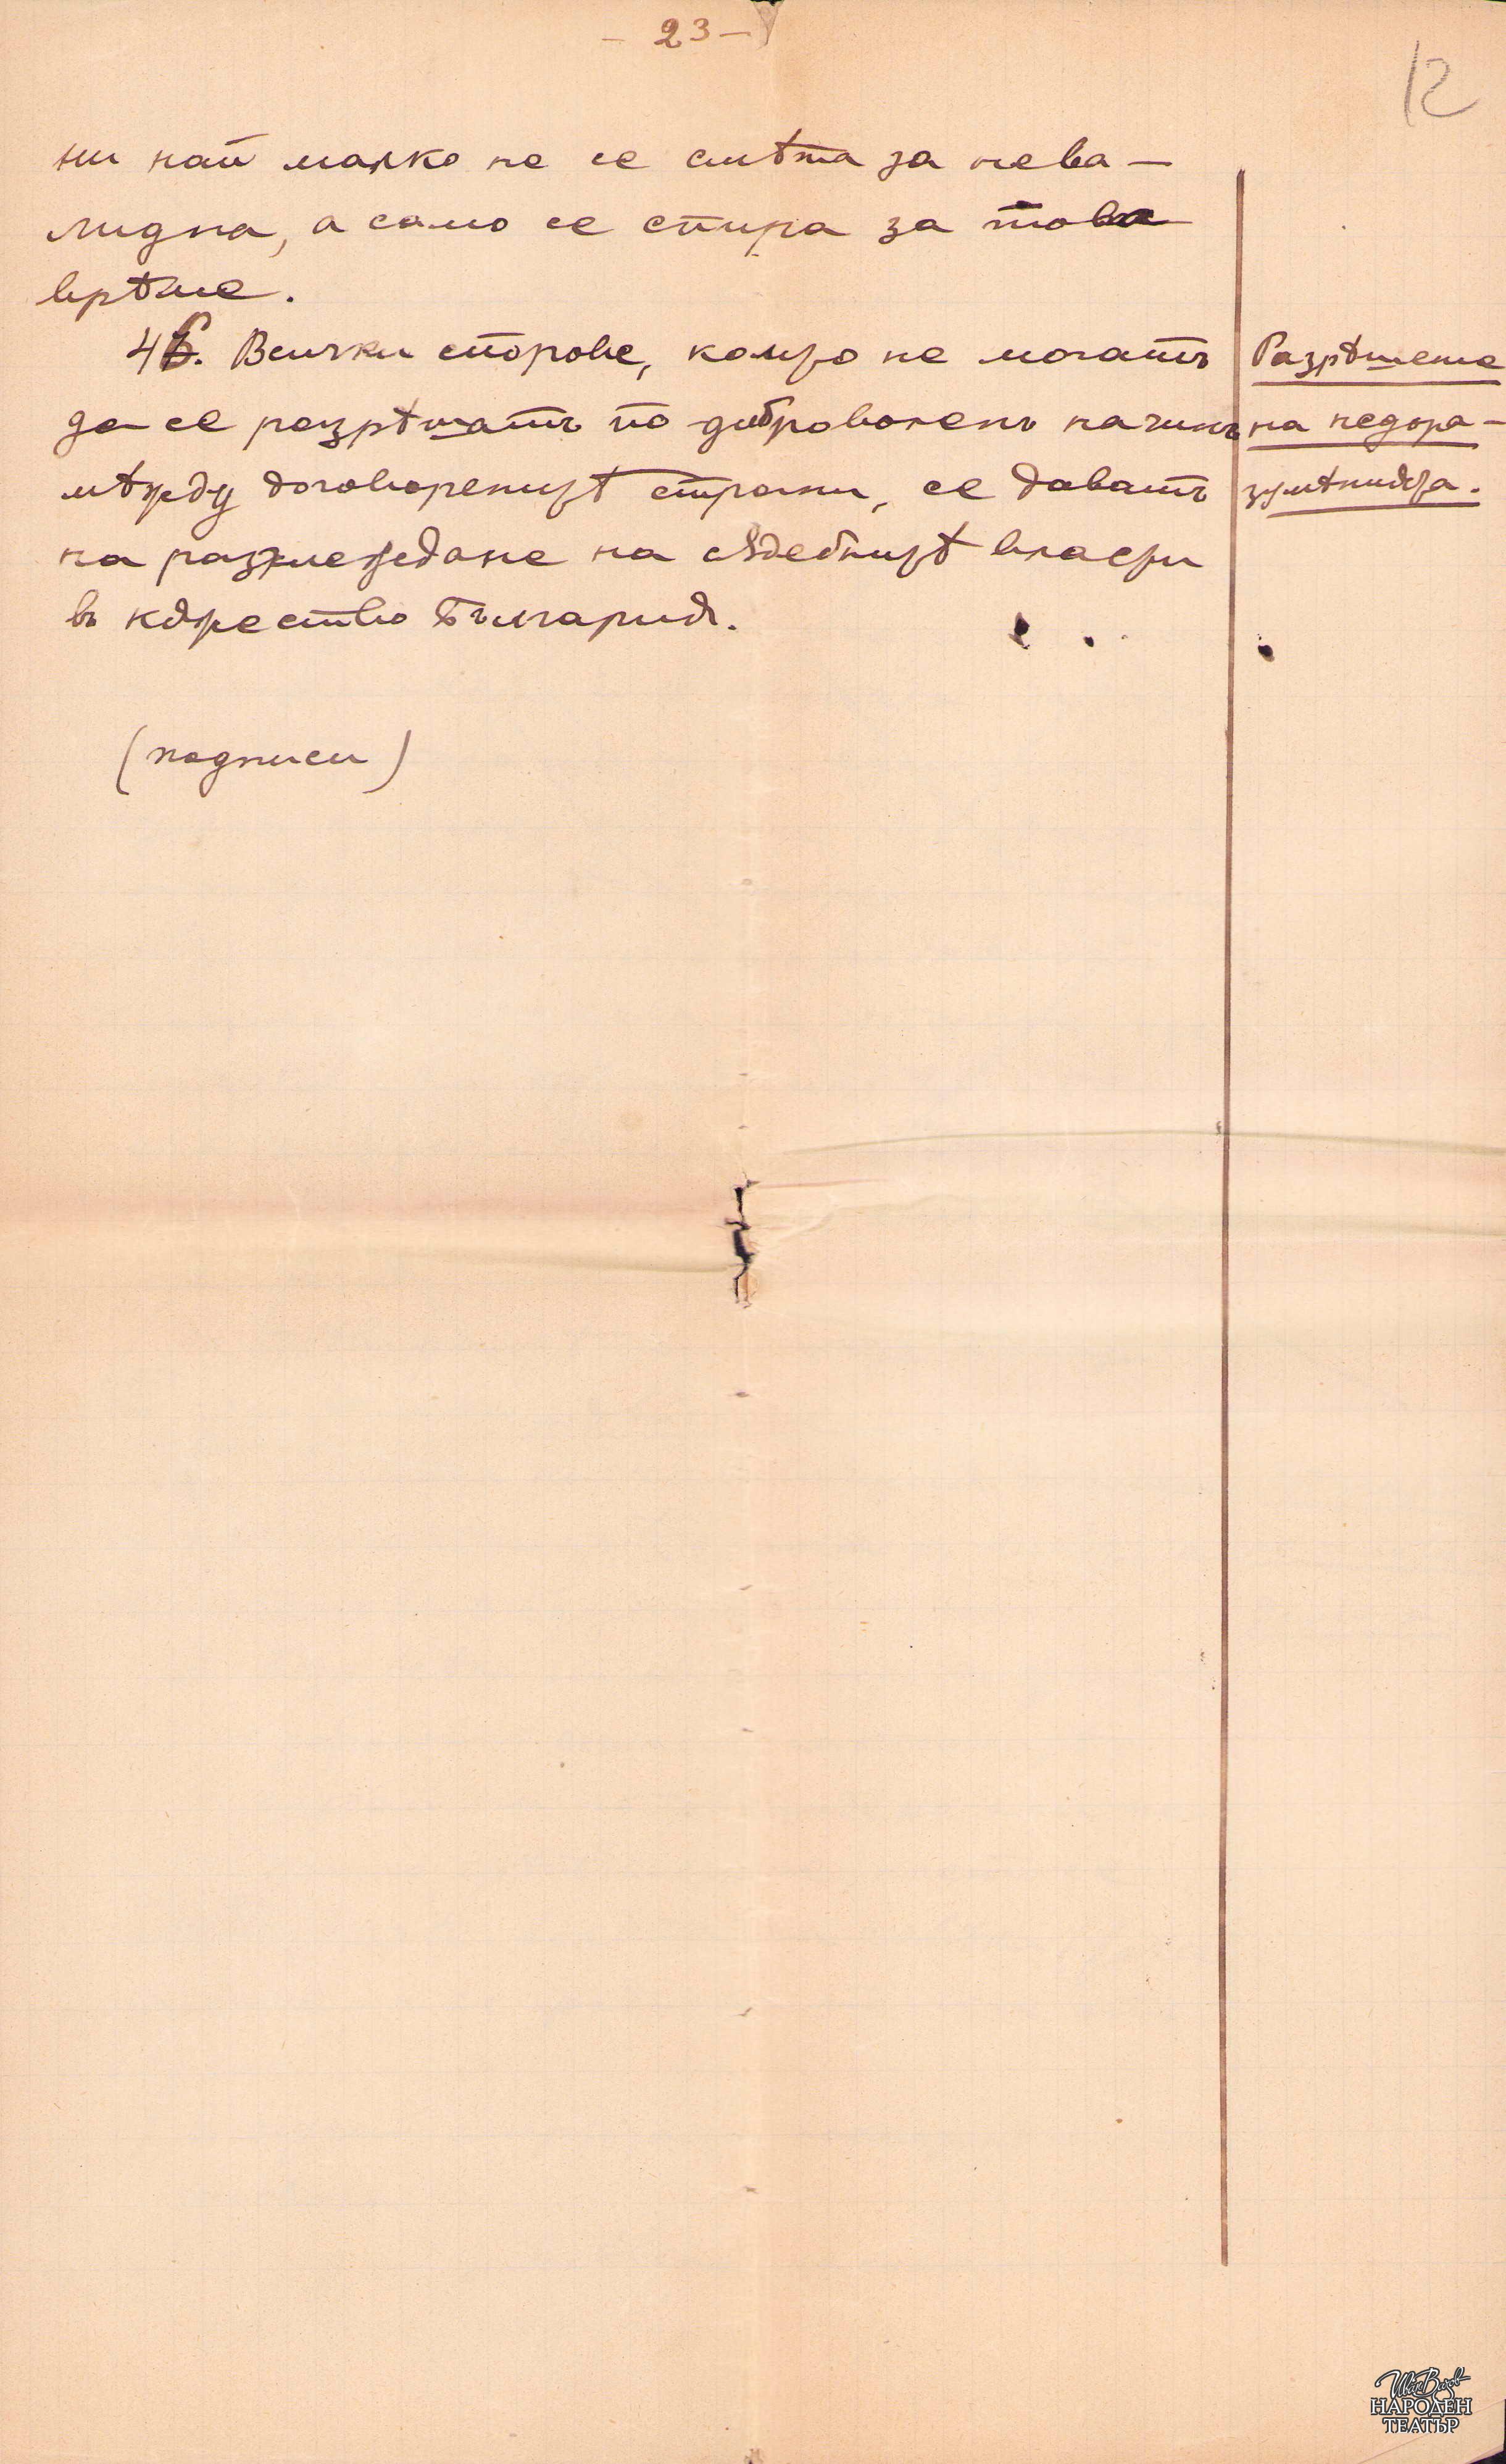 - 23 -
12
ни най малко не се смѣта за нева-
лидна, а само се спира за това
врѣме.
46. Всички спорове, които не могатъ
да се разрѣшатъ по доброволенъ начинъ
мѣжду договоренитѣ страни, се даватъ
на разглеждане на сѫдебнитѣ власти
въ княжество България.
Разрѣшение
на недора-
зумѣнията.
(подписи)
Иван Вазов
НАРОДЕН
ТЕАТЪР